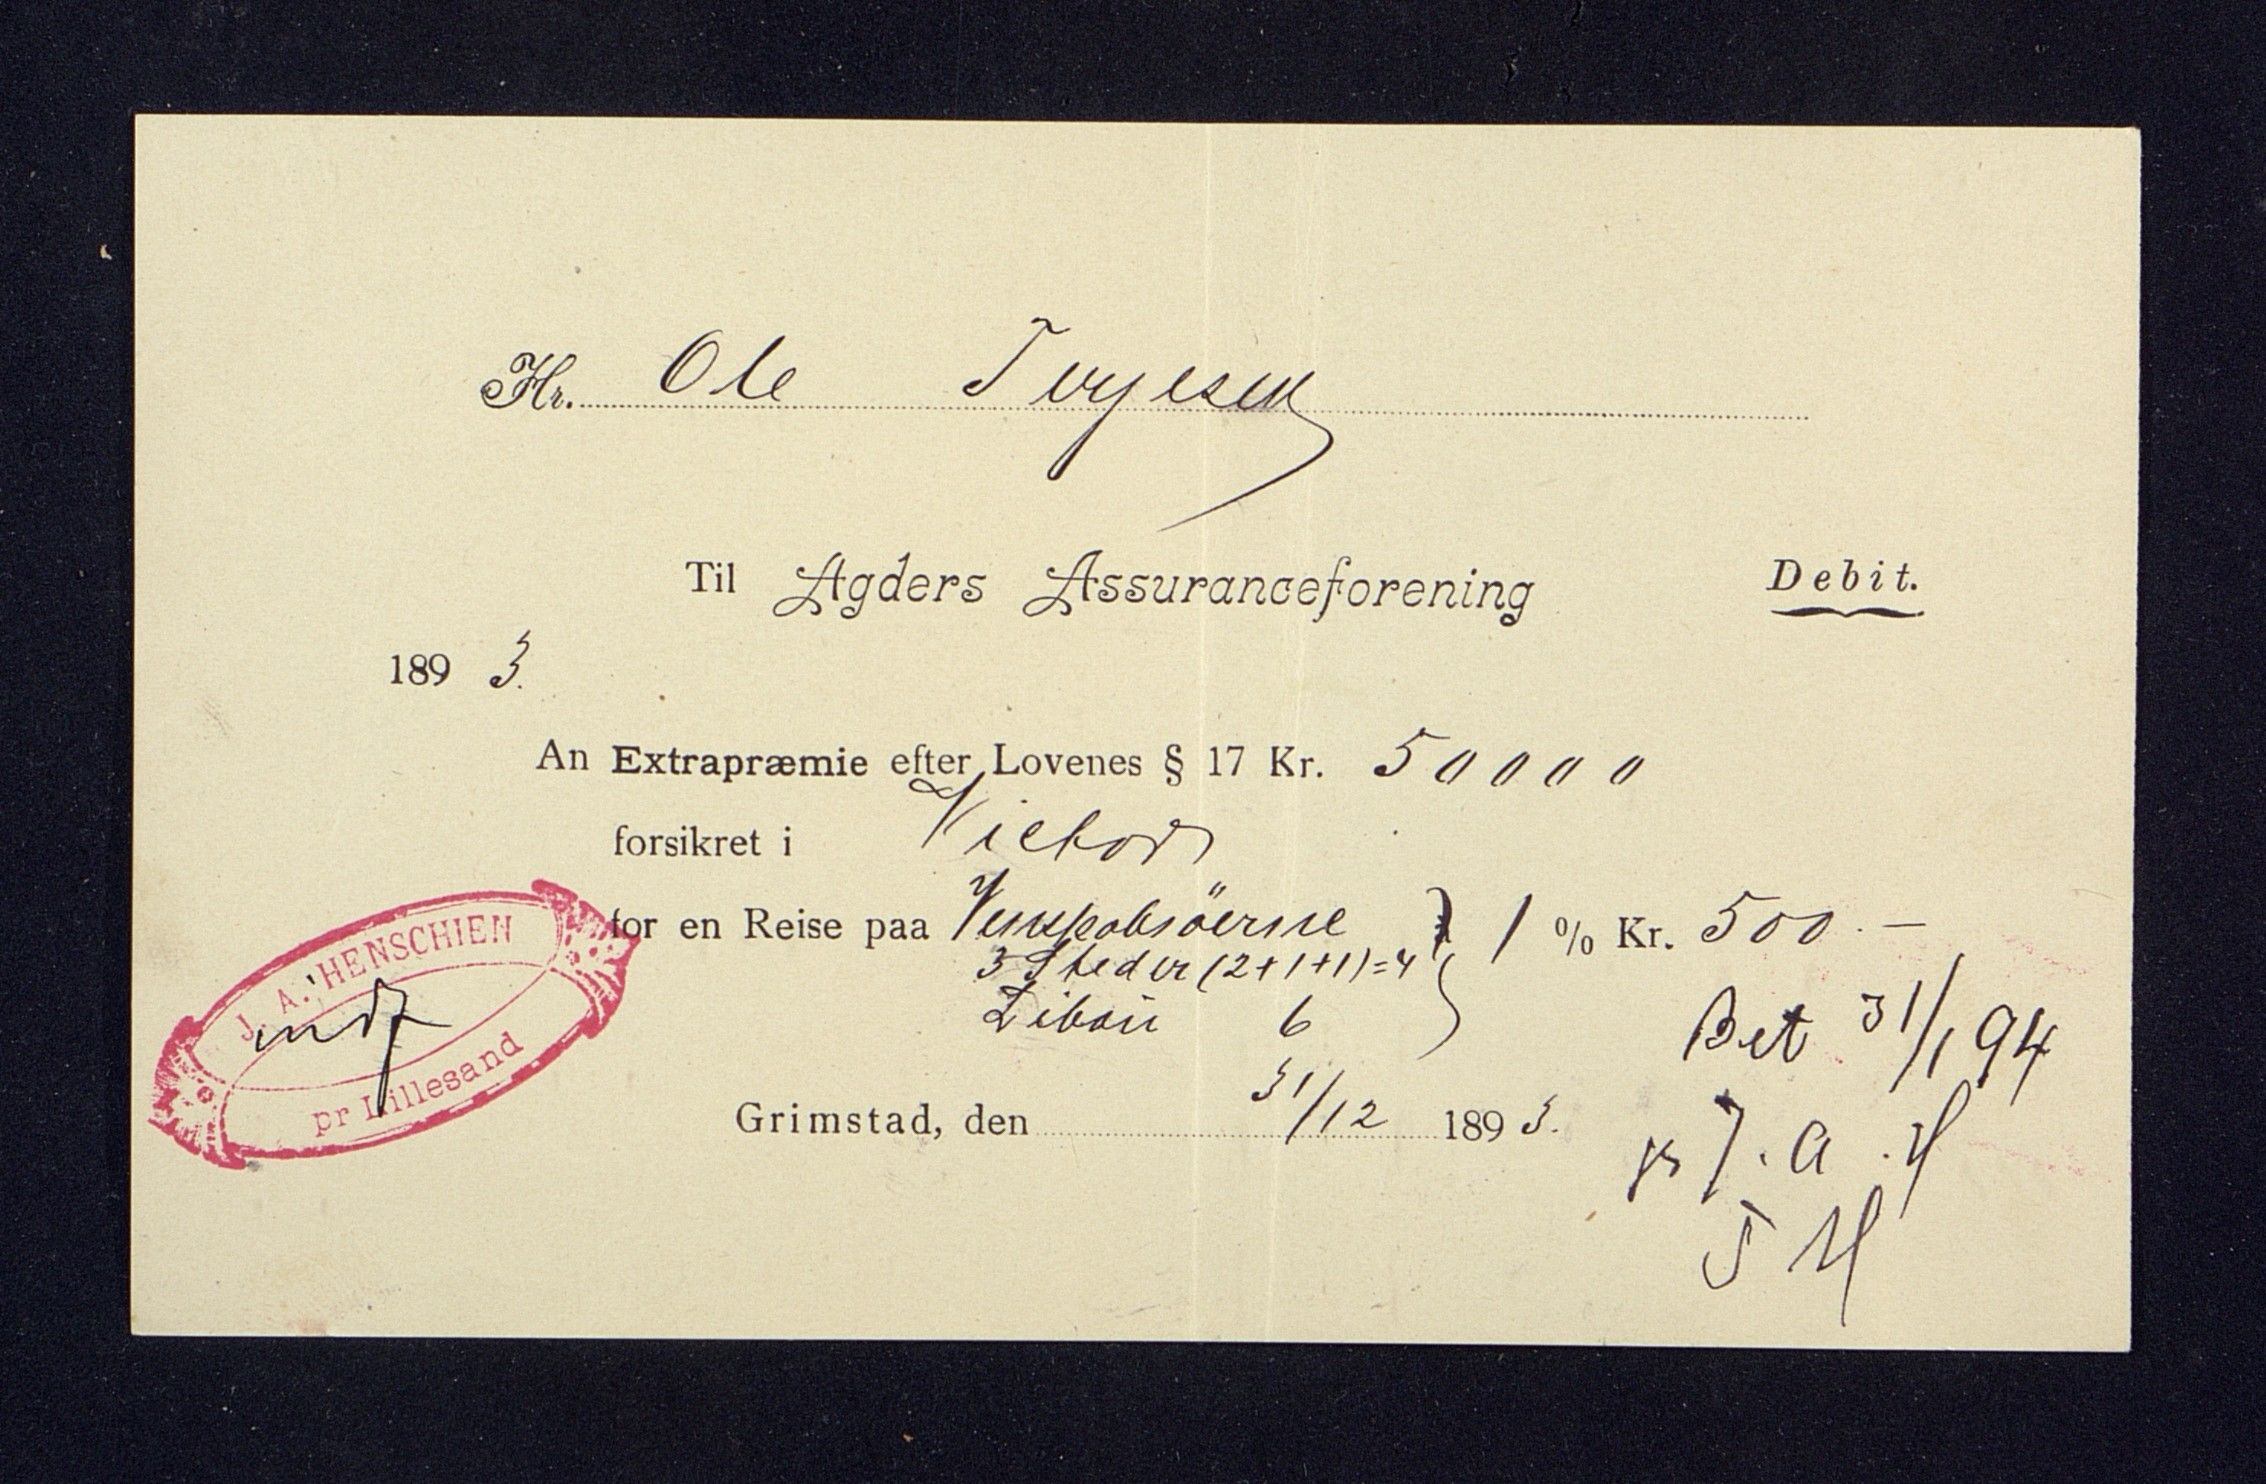 Hr. Ole Terjesen
Til Agders Assuranceforening Debit.
1893.
An Extrapræmie efter Lovenes § 17 Kr. 50000
forsikret i Victor
for en Reise paa 1 % Kr. 500.—
3 Steder (2+1+1)=4
Libau 6
Bet 31/1 94
J. A. HENSCHIEN
pr Lillesand
Grimstad, den 31/12 1893.
pr J. A. H
T H